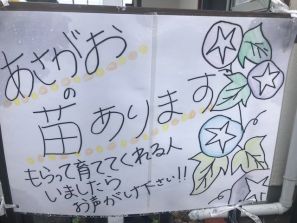 あさがおの
苗あります
もらって育ててくれる人
いましたら
お声がけ下さい!!